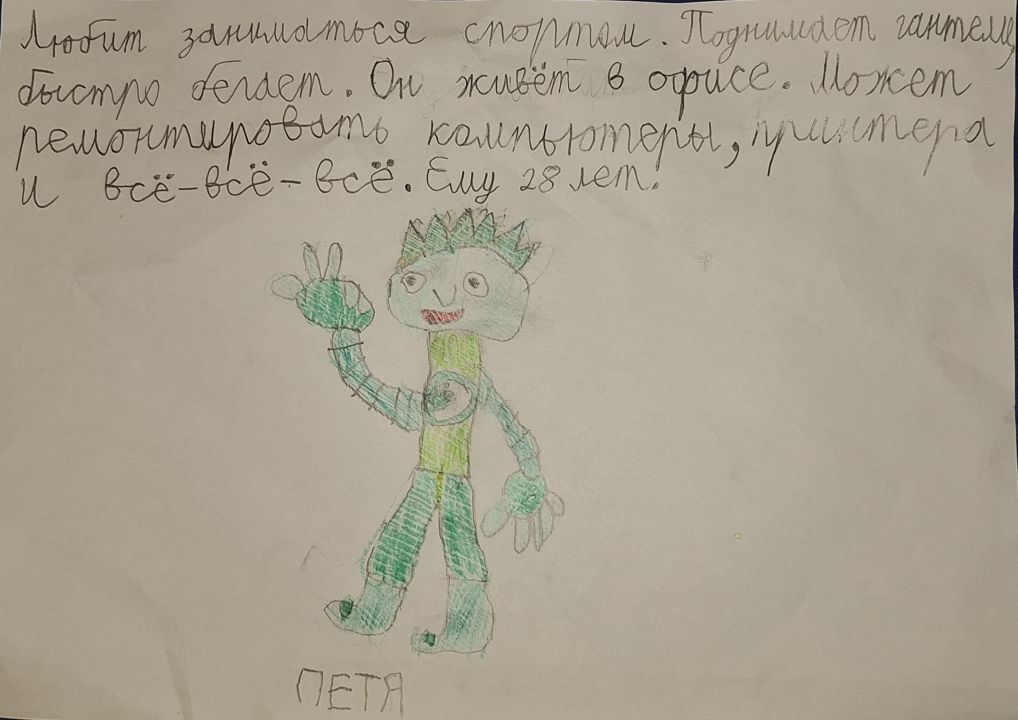 Любит заниматься спортом. Поднимает гантели,
быстро бегает. Он живёт в офисе. Может
ремонтировать компьютеры, принтера
и всё-всё-всё. Ему 28 лет.
ПЕТЯ